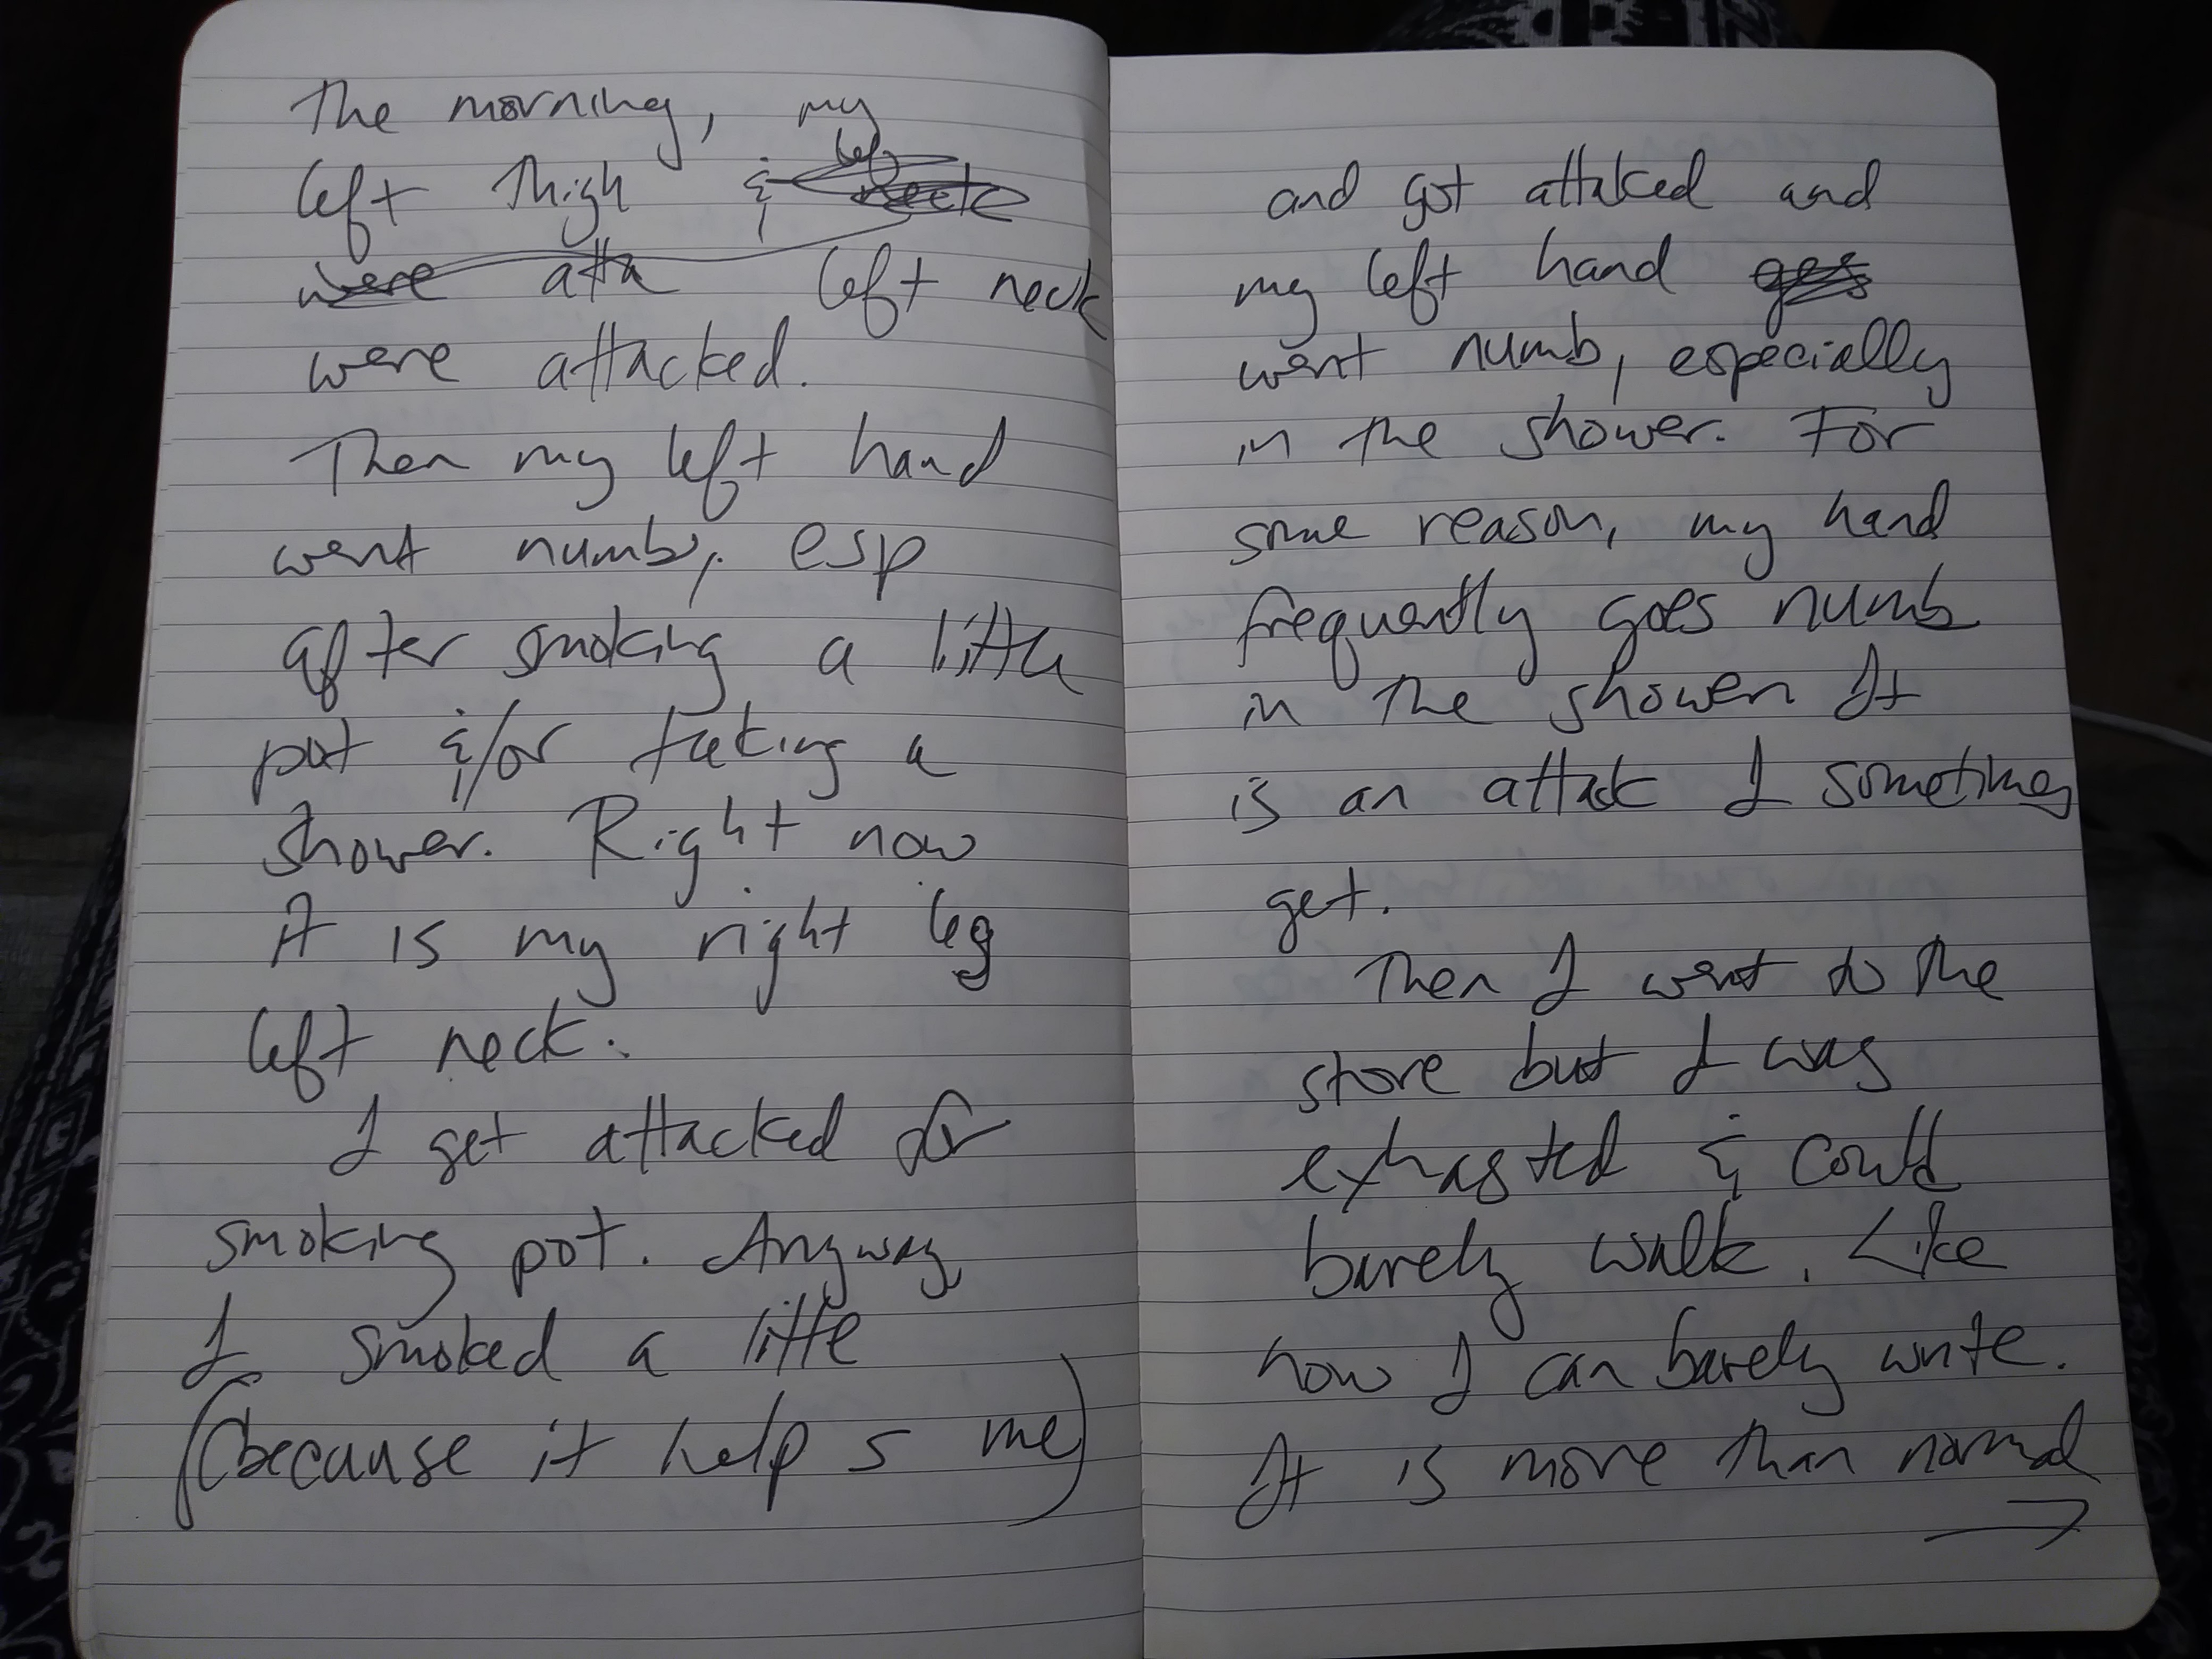 The morning, my
left thigh & left neck
were atta left neck
were attacked.
Then my left hand
went numb, esp
after smoking a little
pot &/or taking a
shower. Right now
it is my right leg
left neck.
I get attacked for
smoking pot. Anyway
I smoked a little
(because it helps me)
and got attaked and
my left hand goes
went numb, especially
in the shower. For
some reason, my hand
frequently goes numb
in the shower. It
is an attack I sometimes
get.
Then I went to the
store but I was
exhasted & could
barely walk. Like
how I can barely write.
It is more than normal
→